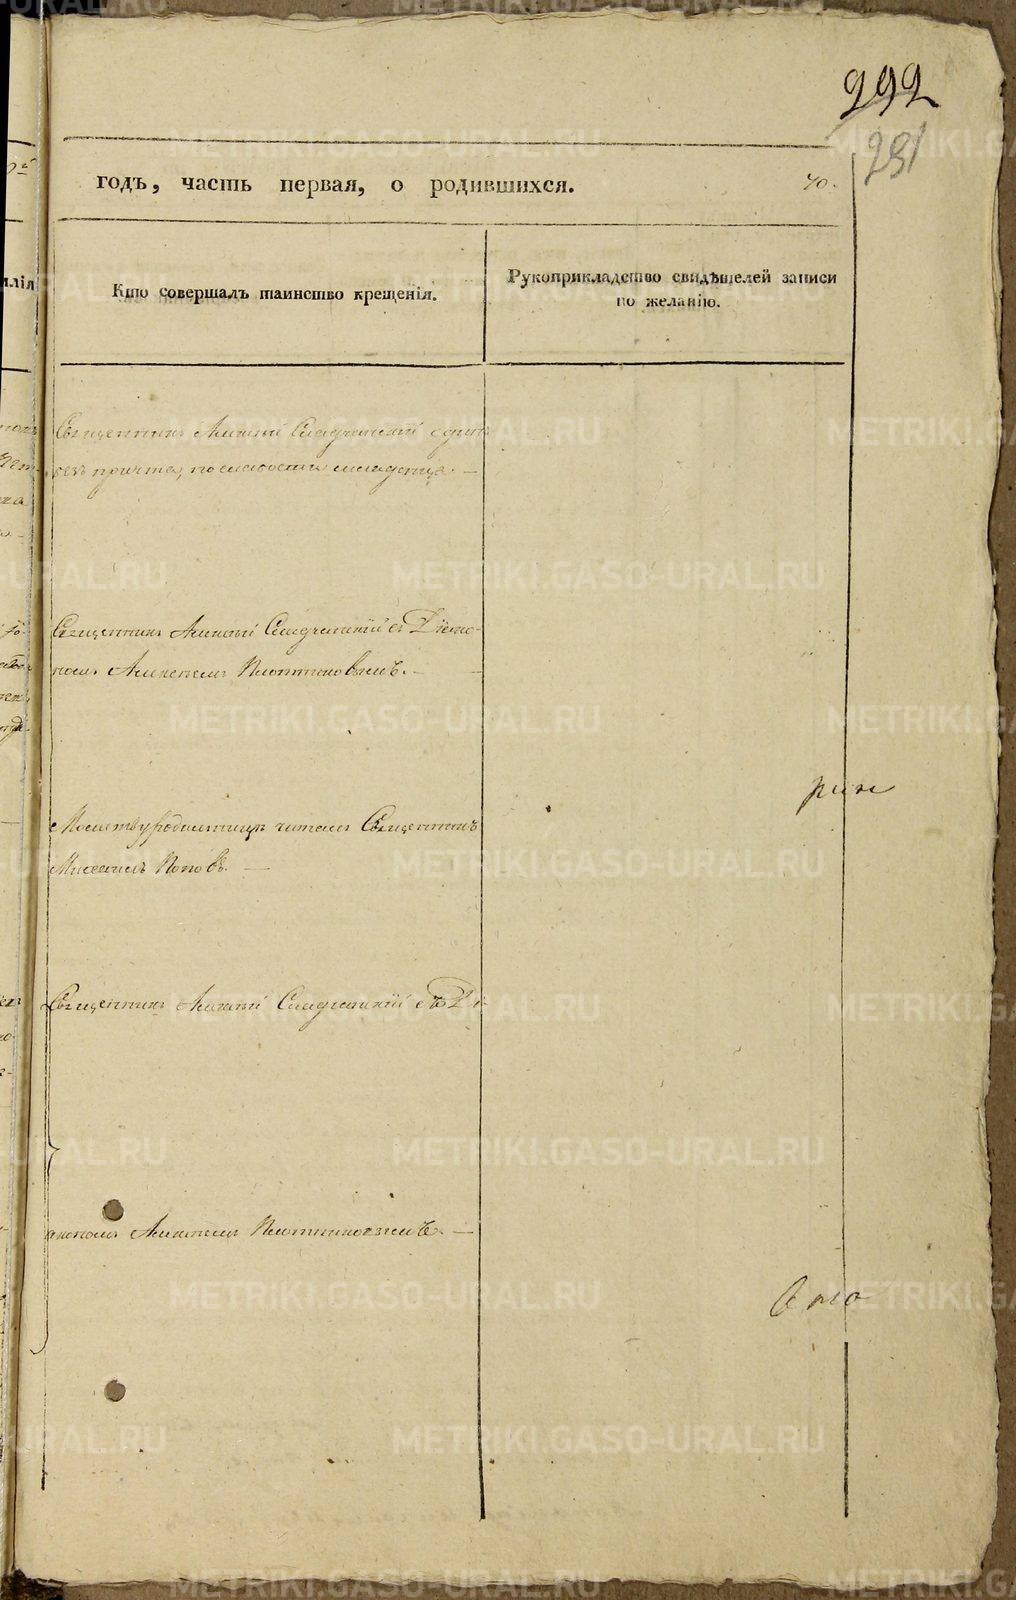 292
251
годъ, часть первая, о родившихся. 40.
Кто совершалъ таинство крещенія.
Рукоприкладство свидѣтелей записи
по желанію.
Священникъ Алексѣй одинъ
безъ причта, по слабости младенца. —
Священникъ Алексѣй съ Діако-
номъ Алексѣемъ Плотниковымъ. —
Молитву родилницѣ читалъ Священникъ
Михаилъ Поповъ. —
Священникъ Алексѣй съ Ді-
акономъ Алексѣемъ Плотниковымъ. —
METRIKI.GASO-URAL.RU